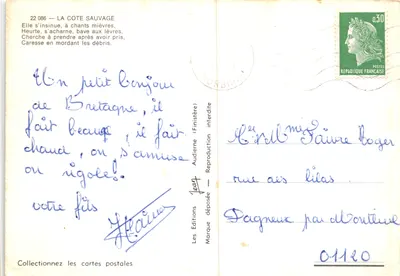 22 086 - LA COTE SAUVAGE
Elle s'insinue, à chants mièvres,
Heurte, s'acharne, bave aux lèvres.
Cherche à prendre après avoir pris,
Caresse en mordant les débris.
Un petit bonjour
de Bretagne, il
fait beau, il fait
chaud, on s'amuse
on rigole.
votre fils
Collectionnez les cartes postales
Les Editions Audierne (Finistère)
Marque déposée - Reproduction interdite
0,30
POSTES
REPUBLIQUE FRANÇAISE
Mr et Mme Faivre Roger
rue des lilas
Dagneux par Montluel
01120